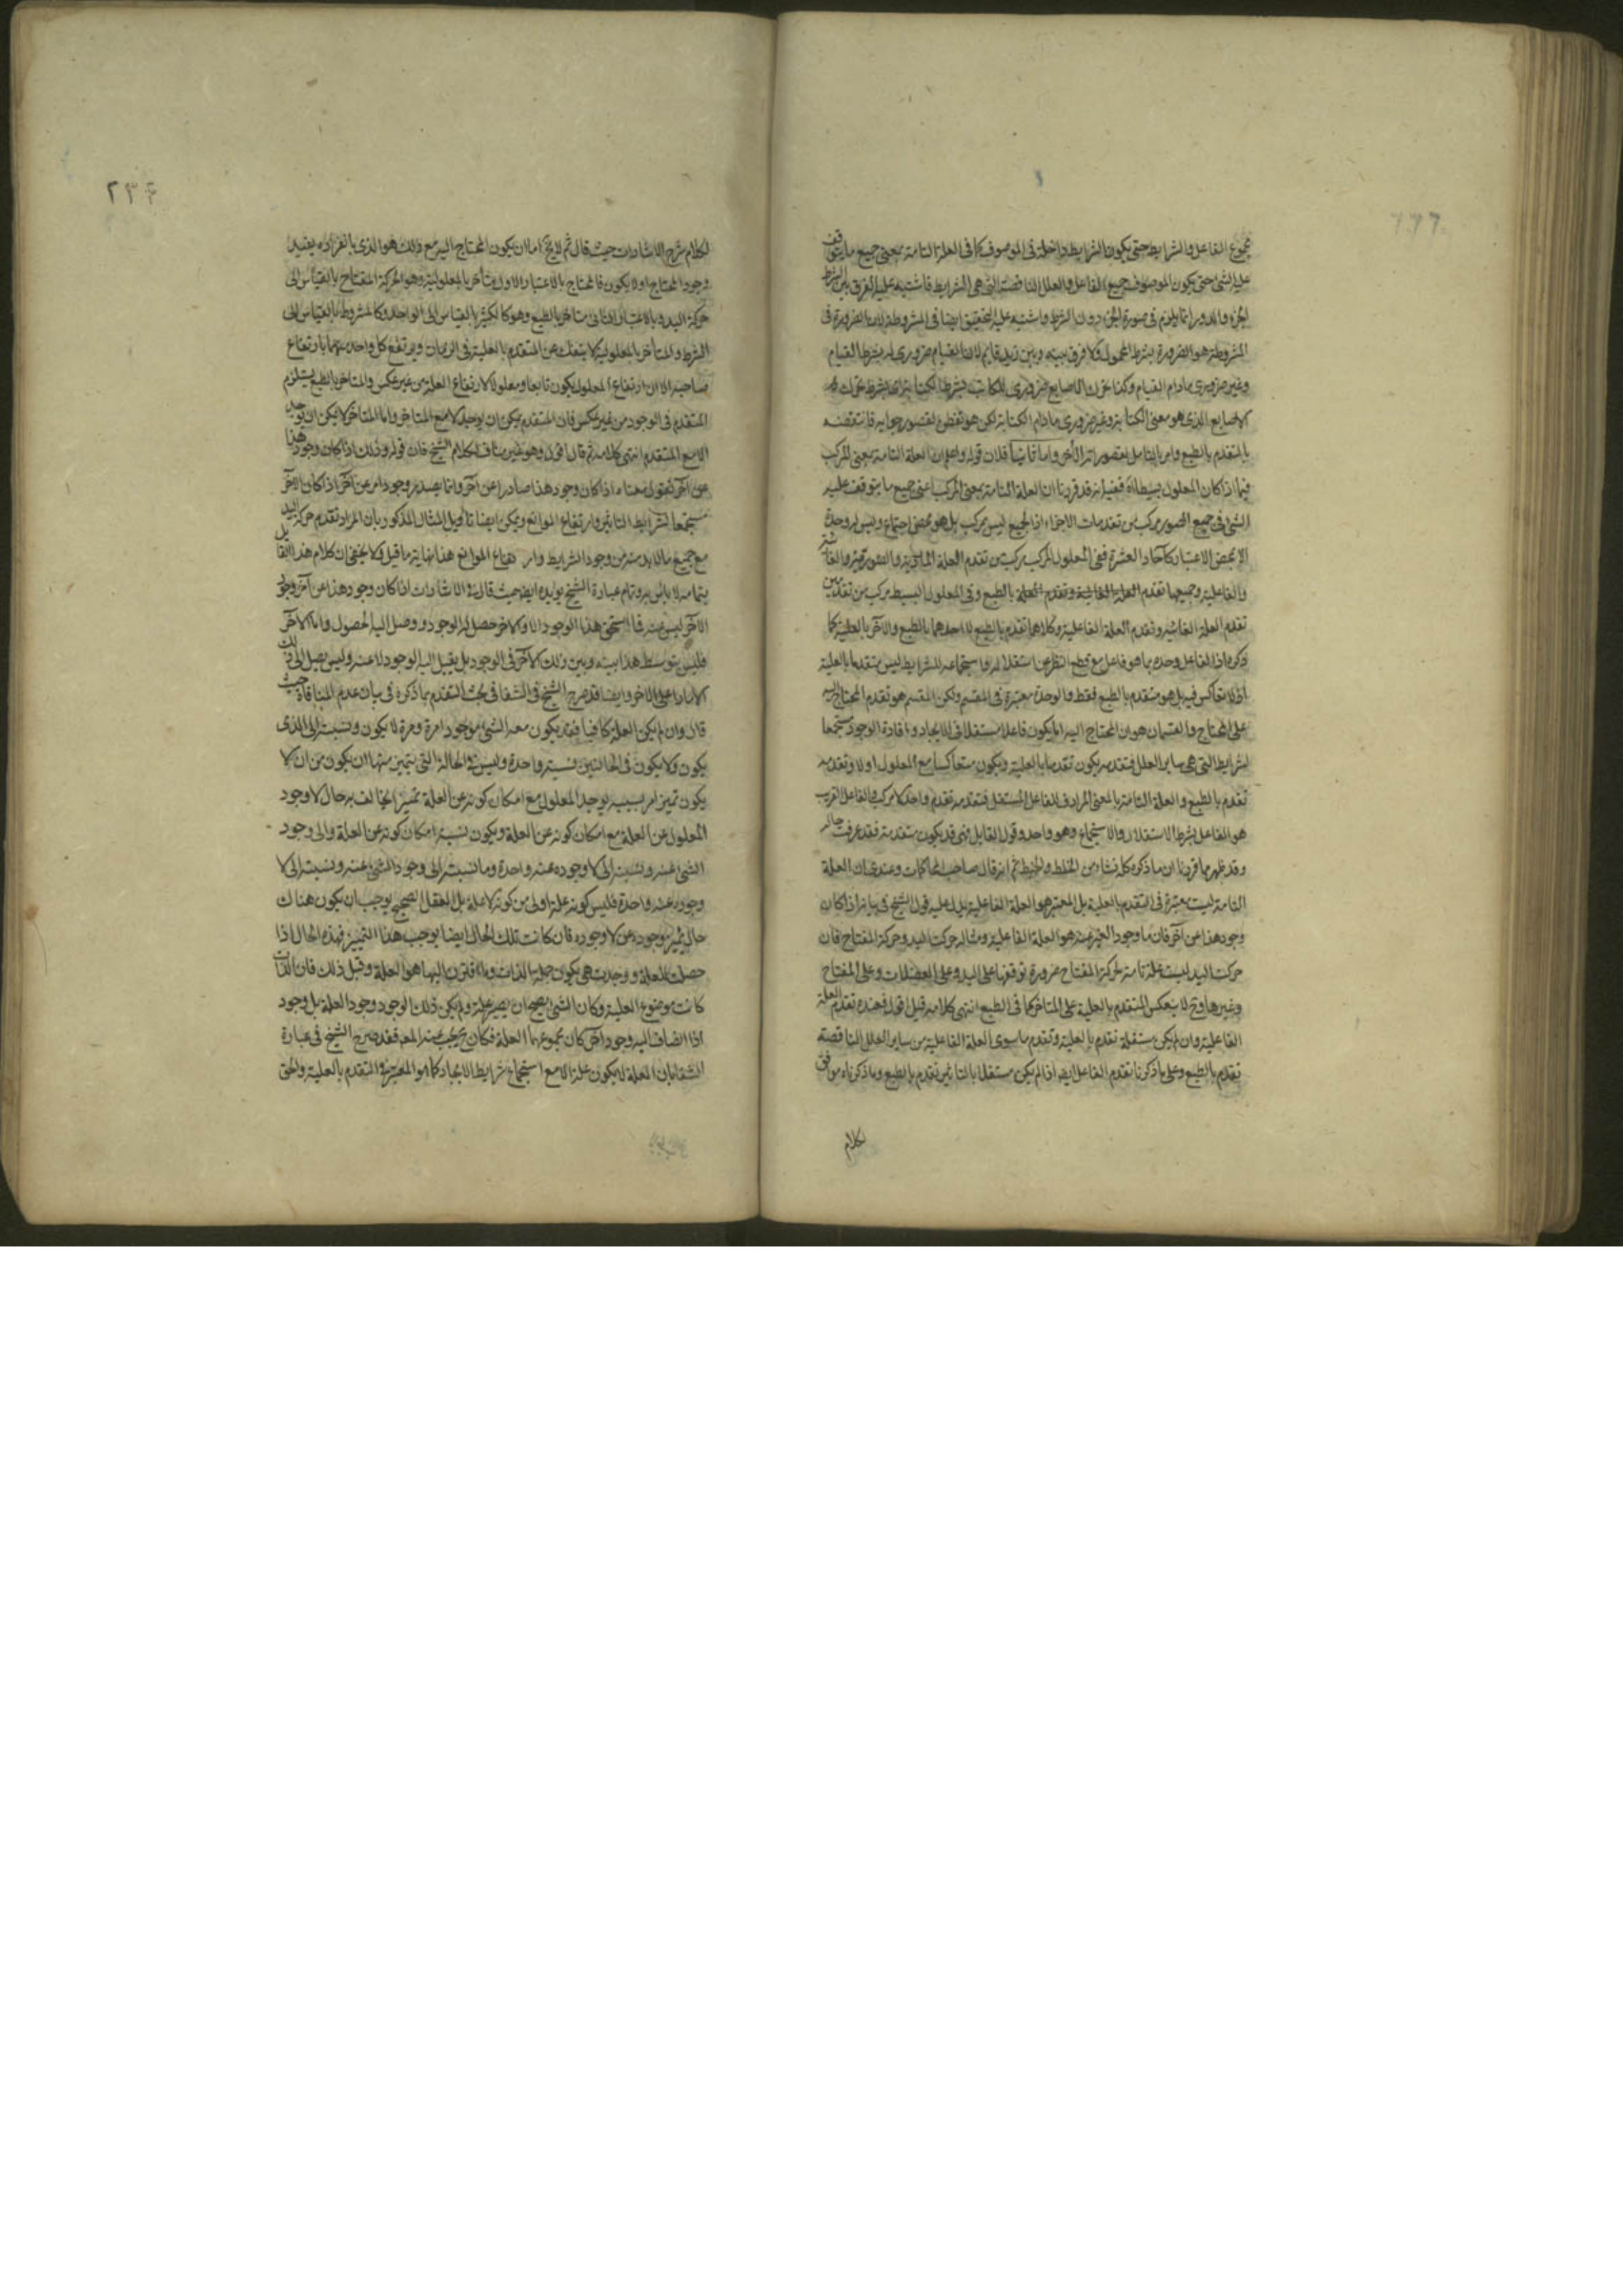 مجموع الفاعل والشرايط حتى يكون الشرايط داخلة فى الموصوف كما فى العلة التامة بمعنى جميع ما يتوقف
عليه الشئ حتى يكون الموصوف جميع الفاعل والعلل الناقصة التى هى الشرايط فاشتبه عليه الفرق بين الشرط
الجزء والدور انما يلزم فى صورة الجزء دون الشرط واشتبه عليه التحقيق ايضا فى المشروطة لان الضرورة فى
المشروطة هو الضرورة بشرط المحمول ولا فرق بينه وبين زيد قايم لان القيام ضرورى له بشرط القيام
وغير ضرورى مادام القيام وكذا تحرك الاصابع ضرورى للكاتب بشرط الكتابة اى بشرط تحرك
الاصابع الذى هو معنى الكتابة وغير ضرورى مادام الكتابة لكن هو تفطن لقصور جوابه فانتقضه
بالمتقدم بالطبع وامر بالتامل لقصور اثر الآخر واما ثانيا فلان قوله واعلم ان العلة التامة بمعنى المركب
فيما اذا كان المعلول بسيطا اه ففيه انه قد قررنا ان العلة التامة بمعنى المركب اعنى جميع ما يتوقف عليه
الشئ فى جميع الصور مركب من تقدمات الاجزاء اذ الجميع ليس بمركب بل هو محض اجتماع وليس له وحدة
الا بمحض الاعتبار كآحاد العشرة ففى المعلول المركب مركب من تقدم العلة المادية والصورية والغائية
والفاعلية وجميعها تقدم العلة الغائية وتقدم العلة بالطبع وفى المعلول البسيط مركب من تقدمين
تقدم العلة الغائية وتقدم العلة الفاعلية وكلاهما تقدم بالطبع لا احدهما بالطبع والآخر بالعلية كما
ذكره اذ الفاعل وحده بما هو فاعل مع قطع النظر عن استقلاله واستجماعه للشرايط ليس متقدما بالعلية
اذ لا تعاكس فيه بل هو متقدم بالطبع فقط والوحدة معتبرة فى المقسم ولكن المقسم هو تقدم المحتاج اليه
على المحتاج والقسمان هو ان المحتاج اليه اما يكون فاعلا مستقلا فى الايجاد وافادة الوجود مستجمعا
لشرايط التى هى ساير العلل فتقدمه يكون تقدما بالعلية ويكون متعاكسا مع المعلول اولا وتقدمه
تقدم بالطبع والعلة التامة بالمعنى المرادف للفاعل المستقل فتقدمه تقدم واحد لا مركب والفاعل القريب
هو الفاعل بشرط الاستقلال والاستجماع وهو واحد وقول القايل فهى قد يكون متقدمة فقد عرفت حاله
وقد ظهر مما قررنا ان ما ذكره كله نشاء من الخلط والخبط ثم انه قال صاحب المحاكمات وعندى ان العلة
التامة ليست معتبرة فى التقدم بالعلية بل المعتبر هو العلة الفاعلية يدل عليه قول الشيخ فى بيانه اذا كان
وجود هذا عن آخر فان ما وجود الغير عنه هو العلة الفاعلية ومثاله حركت اليد وحركة المفتاح فان
حركت اليد ليست علة تامة لحركة المفتاح ضرورة توقفها على اليد وعلى العضلات وعلى المفتاح
وغيرها وح لا ينعكس المتقدم بالعلية على المتاخر كما فى الطبع انتهى كلامه قيل اقول فعنده تقدم العلة
الفاعلية وان لم يكن مستقلة تقدم بالعلية وتقدم ما سوى العلة الفاعلية من ساير العلل الناقصة
تقدم بالطبع وعلى ما ذكرنا تقدم الفاعل ايضا اذا لم يكن مستقلا بالتاثير تقدم بالطبع وما ذكرناه موافق
لكلام
٢٣٤
لكلام شرح الاشارات حيث قال ثم لا يخ اما ان يكون المحتاج اليه مع ذلك هو الذى بانفراده يفيد
وجود المحتاج او لا يكون فالمحتاج بالاعتبار الاول متأخر بالمعلولية وهو كحركة المفتاح بالقياس الى
حركة اليد وبالاعتبار الثانى متاخر بالطبع وهو كالكثير بالقياس الى الواحد وكالمشروط بالقياس الى
الشرط والمتأخر بالمعلولية لا ينفك عن المتقدم بالعلية فى الزمان ويرتفع كل واحد منهما بارتفاع
صاحبه الا ان ارتفاع المعلول يكون تابعا ومعلولا لارتفاع العلة من غير عكس والمتاخر بالطبع يستلزم
المتقدم فى الوجود من غير عكس فان المتقدم يمكن ان يوجد لا مع المتاخر واما المتاخر لا يمكن ان يوجد
الا مع المتقدم انتهى كلامه ثم قال اقول وهو غير مناف لكلام الشيخ فان قوله وذلك اذا كان وجود هذا
عن آخر نقول معناه اذا كان وجود هذا صادرا عن آخر وانما يصدر وجود امر عن آخر اذا كان الآخر
مستجمعا لشرايط التاثير وارتفاع الموانع ويمكن ايضا تأويل المثال المذكور بان المراد تقدم حركة اليد
مع جميع ما لابد منه من وجود الشرايط وارتفاع الموانع هذا نهاية ما قيل ولا يخفى ان كلام هذا القايل
بتمامه لا باس به وتمام عبارة الشيخ يؤيده ايضا حيث قال فى الاشارات اذا كان وجود هذا عن آخر ووجود
الآخر ليس عنه فما استحق هذا الوجود الا والآخر حصل له الوجود ووصل اليه الحصول واما الآخر
فليس يتوسط هذا بينه وبين ذلك الآخر فى الوجود بل يصل اليه الوجود لا عنه وليس يصل الى ذلك
الا مارا على الآخر وايضا قد صرح الشيخ فى الشفا فى بحث التقدم بما ذكره فى بيان عدم المنافاة حيث
قال وان لم يكن العلة كافيا فقد يكون معه الشئ موجودا مرة ومرة لا يكون ونسبته الى الذى
يكون ولا يكون فى الحالتين نسبة واحدة وليس فى الحالة التى يتميز منها ان يكون من ان لا
يكون تميز امر بسببه يوجد المعلول مع امكان كونه عن العلة تميزا يخالف به حال لا وجود
المعلول عن العلة مع امكان كونه عن العلة ويكون نسبة امكان كونه عن العلة والى وجود
الشئ عنه ونسبته الى لا وجوده عنه واحدة وما نسبته الى وجود الشئ عنه ونسبته الى لا
وجوده عنه واحدة فليس كونه علة اولى من كونه لا علة بل العقل الصحيح يوجب ان يكون هناك
حال تميز وجوده عن لا وجوده فان كانت تلك الحال ايضا يوجب هذا التمييز فهذه الحال اذا
حصلت للعلة ووجدت هى يكون جملة الذات وما اقترن اليها هو العلة وقبل ذلك فان الذات
كانت موضوع العلية وكان الشئ يصح ان يصير علة ولم يكن ذلك الوجود وجود العلة بل وجود
اذا انضاف اليه وجود آخر كان مجموعهما العلة فكان ح يجب عنه المعلول فقد صرح الشيخ فى عبارة
الشفا بان العلة لا يكون علة الا مع استجماع شرايط الايجاد كما هو المعتبر فى المتقدم بالعلية والحق